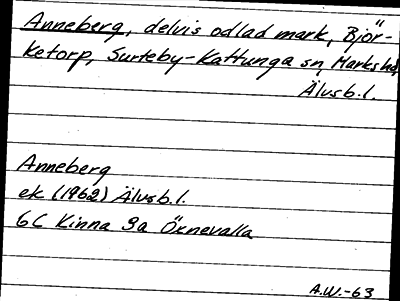 Anneberg, delvis odlad mark, Björ-
ketorp, Surteby-Kattunga sn, Marks hd,
Älvsb.l.
Anneberg
ek (1962) Älvsb.l.
6C Kinna 9a Öxnevalla
A.W.-63